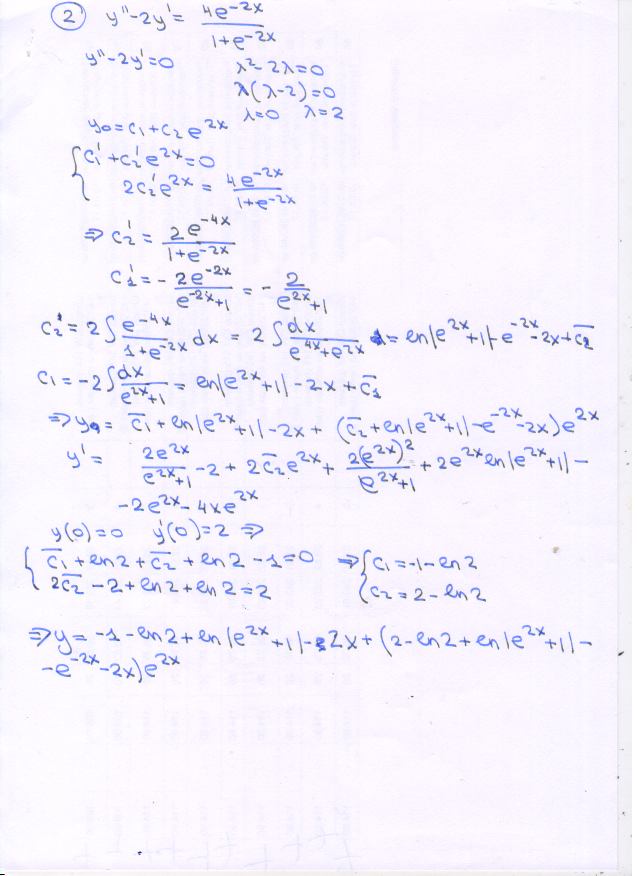 2 y''-2y' = 4e^{-2x}/(1+e^{-2x})
y''-2y'=0 λ²-2λ=0
λ(λ-2)=0
λ=0 λ=2
y₀=c₁+c₂e^{2x}
{ c₁'+c₂'e^{2x}=0
2c₂'e^{2x} = 4e^{-2x}/(1+e^{-2x})
⇒ c₂' = 2e^{-4x}/(1+e^{-2x})
c₁' = - 2e^{-2x}/(e^{-2x}+1) = - 2/(e^{2x}+1)
c₂ = 2∫ e^{-4x}/(1+e^{-2x}) dx = 2∫ dx/(e^{4x}+e^{2x}) = ln|e^{2x}+1|-e^{-2x}-2x+c̄₂
c₁ = -2∫ dx/(e^{2x}+1) = ln|e^{2x}+1| - 2x + c̄₁
⇒ y₀ = c̄₁+ln|e^{2x}+1|-2x + (c̄₂+ln|e^{2x}+1|-e^{-2x}-2x)e^{2x}
y' = 2e^{2x}/(e^{2x}+1) - 2 + 2c̄₂e^{2x} + 2(e^{2x})²/(e^{2x}+1) + 2e^{2x}ln|e^{2x}+1| -
-2e^{2x}-4xe^{2x}
y(0)=0 y'(0)=2 ⇒
{ c̄₁+ln2+c̄₂+ln2-1=0 ⇒ { c₁=-1-ln2
2c̄₂-2+ln2+ln2=2 c₂=2-ln2
⇒ y = -1-ln2+ln|e^{2x}+1|-2x+(2-ln2+ln|e^{2x}+1|-
-e^{-2x}-2x)e^{2x}